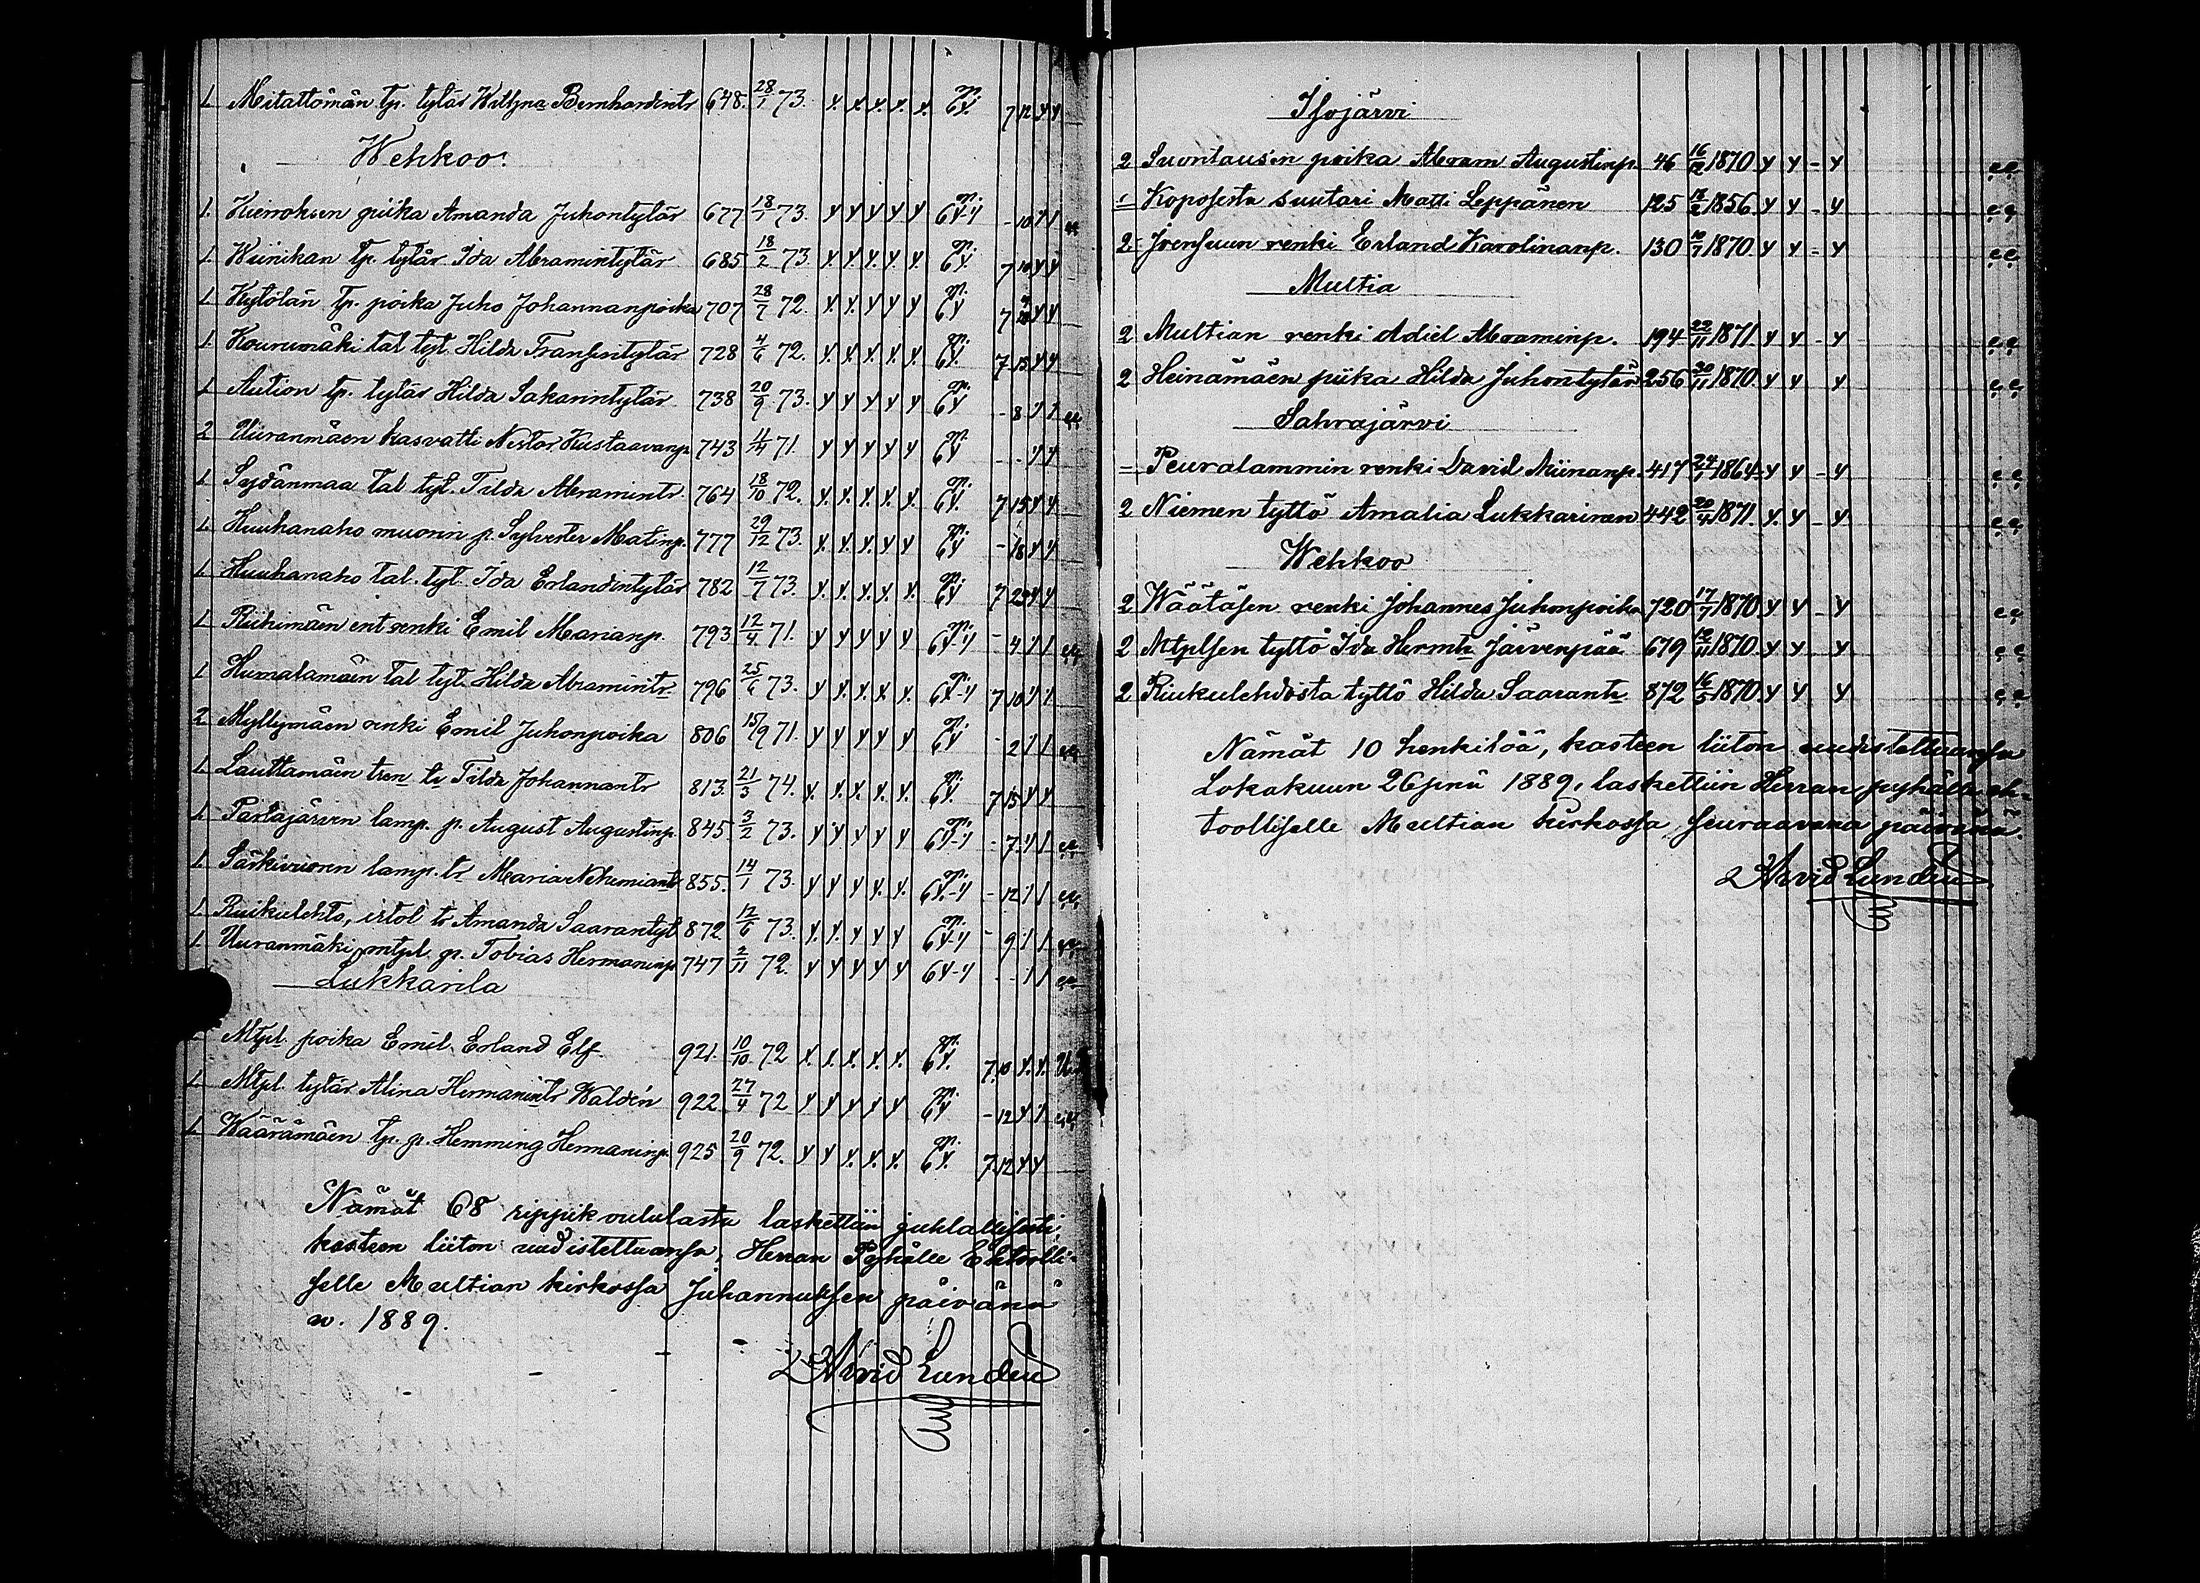 1. Meitattömän tp. tytär Wilhna Bernhardintr 648. 28/1 73. x. x. x. x. x. 6x. 7 12 y y
Wehkoo.
1. Hienoksen piika Amanda Juhontytär 677 18/1 73. y y y y y 6y-y - 10 1 1
1. Wiinikan tp. tytär Ida Abramintytär 685 18/2 73. y. y. y. y. y. 6y. 7 10 y y
1. Kytölän tp. poika Juho Johannanpoika 707 28/7 72. y. y. y y y 6y 7 y y
1. Kourumäki tal tyt. Hilda Fransintytär 728 4/6 72. y. y. y. y. y. 6y. 7 13 y y
1. Aution tp. tytär Hilda Sakarintytär 738 20/9 73. y y y y y 6y - 8 1 1
2 Uuranmäen kasvatti Nestor Kustaavanp. 743 71. y y y y y 6y - - y y
1. Sydänmaa tal tyt. Tilda Abramintr. 764 18/10 72. y. y. y. y. y. 6y. 7 15 y y
1. Huuhanaho muorin p. Sylvester Matinp. 777 29/12 73. y. y. y. y y 6y - 18 y y
1. Huuhanaho tal. tyt. Ida Erlandintytär 782 12/7 73. y. y. y. y. y. 6y 7 23 y y
1. Riihimäen ent renki Emil Marianp. 793 12/4 71. y y y y y 6y-y - 4 1 1
1. Humalamäen tal tyt. Hilda Abramintr 796 25/6 73. y y. y. y. y. 6y-y 7 10 1 1
2 Myllymäen renki Emil Juhonpoika 806 15/9 71. y y y y y 6y - 2 1 1
1. Lauttamäen tren tr Tilda Johannantr 813. 21/3 74. y. y. y. y. y. 6y. 7 15 y y
1. Partajärven lamp. p. August Augustinp. 845 3/2 73. y y y y y 6y-y - 7 1 1
1. Särkivuoren lamp. tr Maria Nehemiantr 855. 14/1 73. y y y y. y. 6y-y - 12 1 1
1. Ruikulehto, irtol tr Amanda Saarantyt 872. 12/6 73. y. y. y y y 6y-y - 9 1 1
1. Uuranmäki, mtpl. p. Tobias Hermaninp 747 2/11 72. y y y y y 6y-y - - 1 1
Lukkarila
Mtpl. poika Emil Erland Elf. 921. 10/10 72 y. y. y. y. y. 6y. 7. 10 y. y.
1. Mtpl. tytär Alina Hermanintr Waldén 922. 27/4 72 y y y y y 6y - 12 y 1
1. Wäärämäen tp. p. Hemming Hermaninp. 925 20/9 72. y y y. y. y. 6y. 7 12 y y
Nämät 68 rippikoululasta laskettiin juhlallisesti,
kasteen liiton uudistettuansa, Herran Pyhälle Ehtoolli-
selle Multian kirkossa Juhannuksen päivänä
w. 1889.
Arvid Lunden
Isojärvi
2 Suontausen poika Abram Augustinp. 46 16/12 1870 y y - y
Koposesta suutari Matti Leppänen 125 1856 y y - y
2 Joensuun renki Erland Karolinanp. 130 10/7 1870 y y - y
Multia
2 Multian renki Adiel Abraminp. 194 22/11 1871. y y - y
2 Heinämäen piika Hilda Juhontytär 256 30/11 1870. y y y
Sahrajärvi
- Peuralammin renki David Miinanp. 417 1864 y y - y
2 Niemen tyttö Amalia Lukkarinen 442 20/4 1871. y. y - y
Wehkoo
2 Wäätäsen renki Johannes Juhonpoika 720 17/7 1870 y y - y
2 Mtplsen tyttö Ida Hermtr Järvenpää 679 12/11 1870. y y y
2 Ruikulehdosta tyttö Hilda Saarantr 872 16/5 1870. y y y
Nämät 10 henkilöä, kasteen liiton uudistettuansa
Lokakuun 26 pnä 1889, laskettiin Herran pyhälle eh-
toolliselle Multian kirkossa seuraavana päivänä.
Arvid Lunden